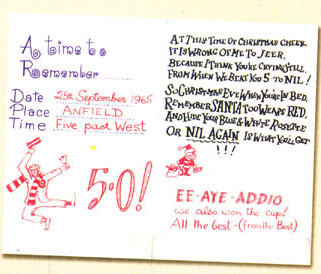 A time to
Remember
Date 25th September 1965
Place ANFIELD
Time Five past West
5-0!
AT THIS TIME OF CHRISTMAS CHEER
IT IS WRONG OF ME TO JEER,
BECAUSE I THINK YOU'RE CRYING STILL,
FROM WHEN WE BEAT YOU 5-TO-NIL!
SO CHRISTMAS EVE WHEN YOU'RE IN BED,
REMEMBER SANTA TOO WEARS RED,
AND HIDE YOUR BLUE & WHITE ROSETTE
OR NIL AGAIN IS WHAT YOU'LL GET
!!!
EE-AYE-ADDIO
we also won the cup!
All the best - (from the Best)